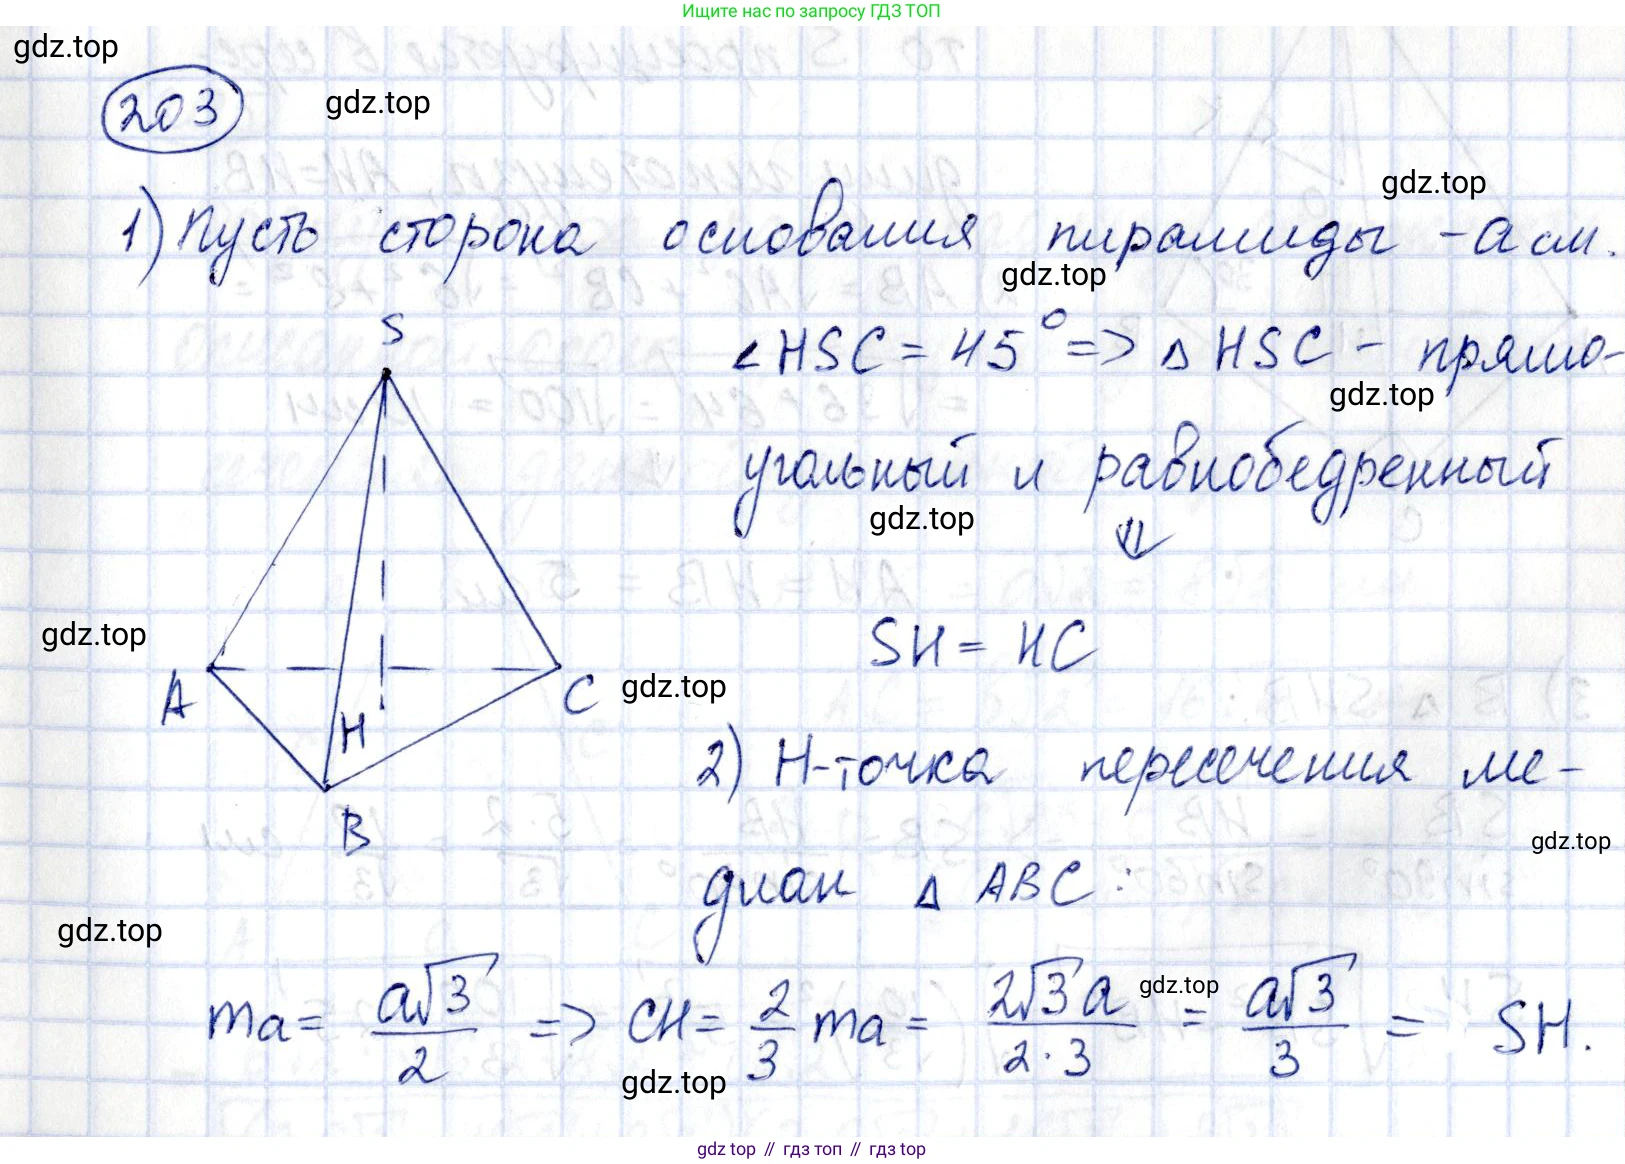 Ищите нас по запросу ГДЗ ТОП
gdz.top
203
gdz.top
gdz.top
1) Пусть сторона основания пирамиды - a см.
gdz.top
S
∠HSC = 45° => △ HSC - прямо-
gdz.top
угольный и равнобедренный
gdz.top
⇓
gdz.top
SH = HC
A
H
C
gdz.top
2) H-точка пересечения ме-
B
gdz.top
диан △ ABC:
gdz.top
ma = a√3/2 => CH = 2/3 ma = 2√3a/2·3 = a√3/3 = SH.
gdz.top
gdz.top
gdz top // гдз топ // гдз top